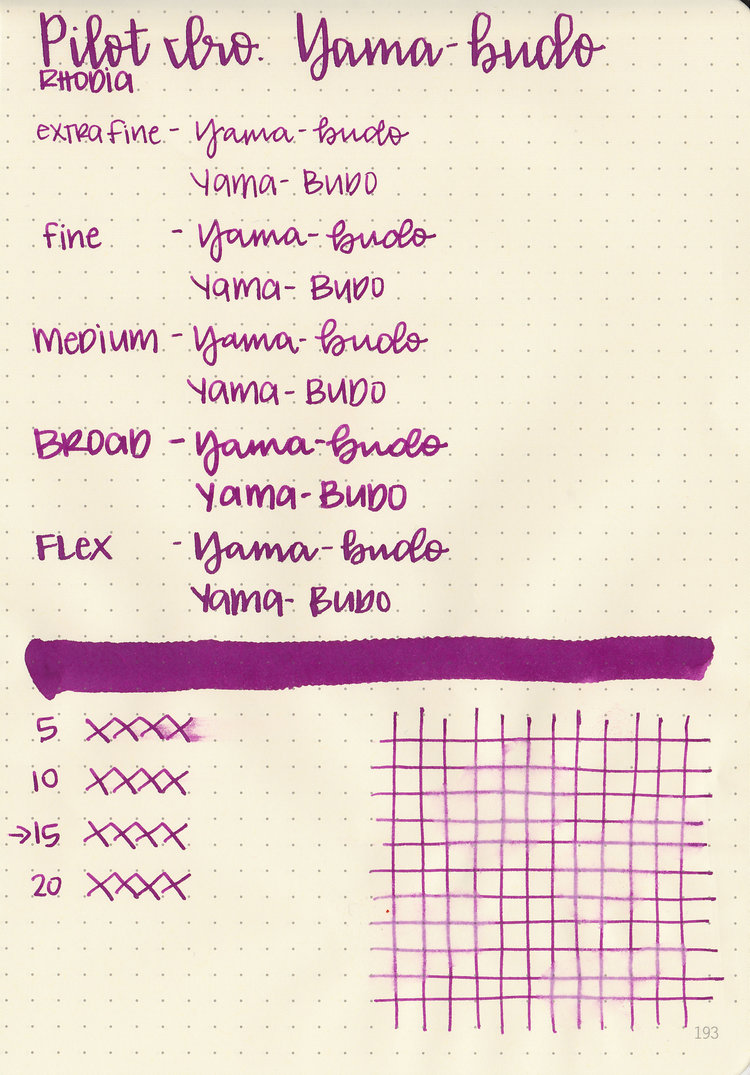 Pilot Iro. Yama-budo
RHODIA
extra fine - Yama-budo
Yama-BUDO
fine - Yama-budo
Yama-BUDO
Medium - Yama-budo
Yama-BUDO
BROAD - Yama-budo
Yama-BUDO
FLex - Yama-budo
Yama-BUDO
5 XXXX
10 XXXX
→15 XXXX
20 XXXX
193